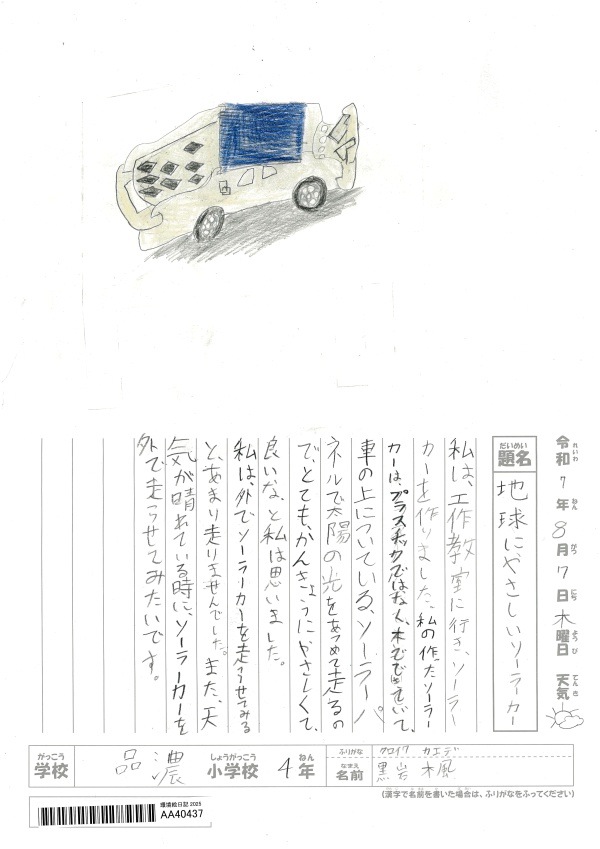 令和7年8月7日木曜日 天気
れいわ ねん がつ にち ようび てんき
だいめい
題名 地球にやさしいソーラーカー
私は、工作教室に行き、ソーラー
カーを作りました。私の作ったソーラー
カーは、プラスチックではなく、木でできていて、
車の上についている、ソーラーパ
ネルで太陽の光をあつめて走るの
で、とても、かんきょうにやさしくて、
良いな、と私は思いました。
私は、外でソーラーカーを走らせてみる
と、あまり走りませんでした。また、天
気が晴れている時に、ソーラーカーを
外で走らせてみたいです。
がっこう しょうがっこう ねん
学校 品濃 小学校 4年
ふりがな クロイワ カエデ
なまえ
名前 黒岩 楓
(漢字で名前を書いた場合は、ふりがなをふってください)
環境絵日記 2025
AA40437